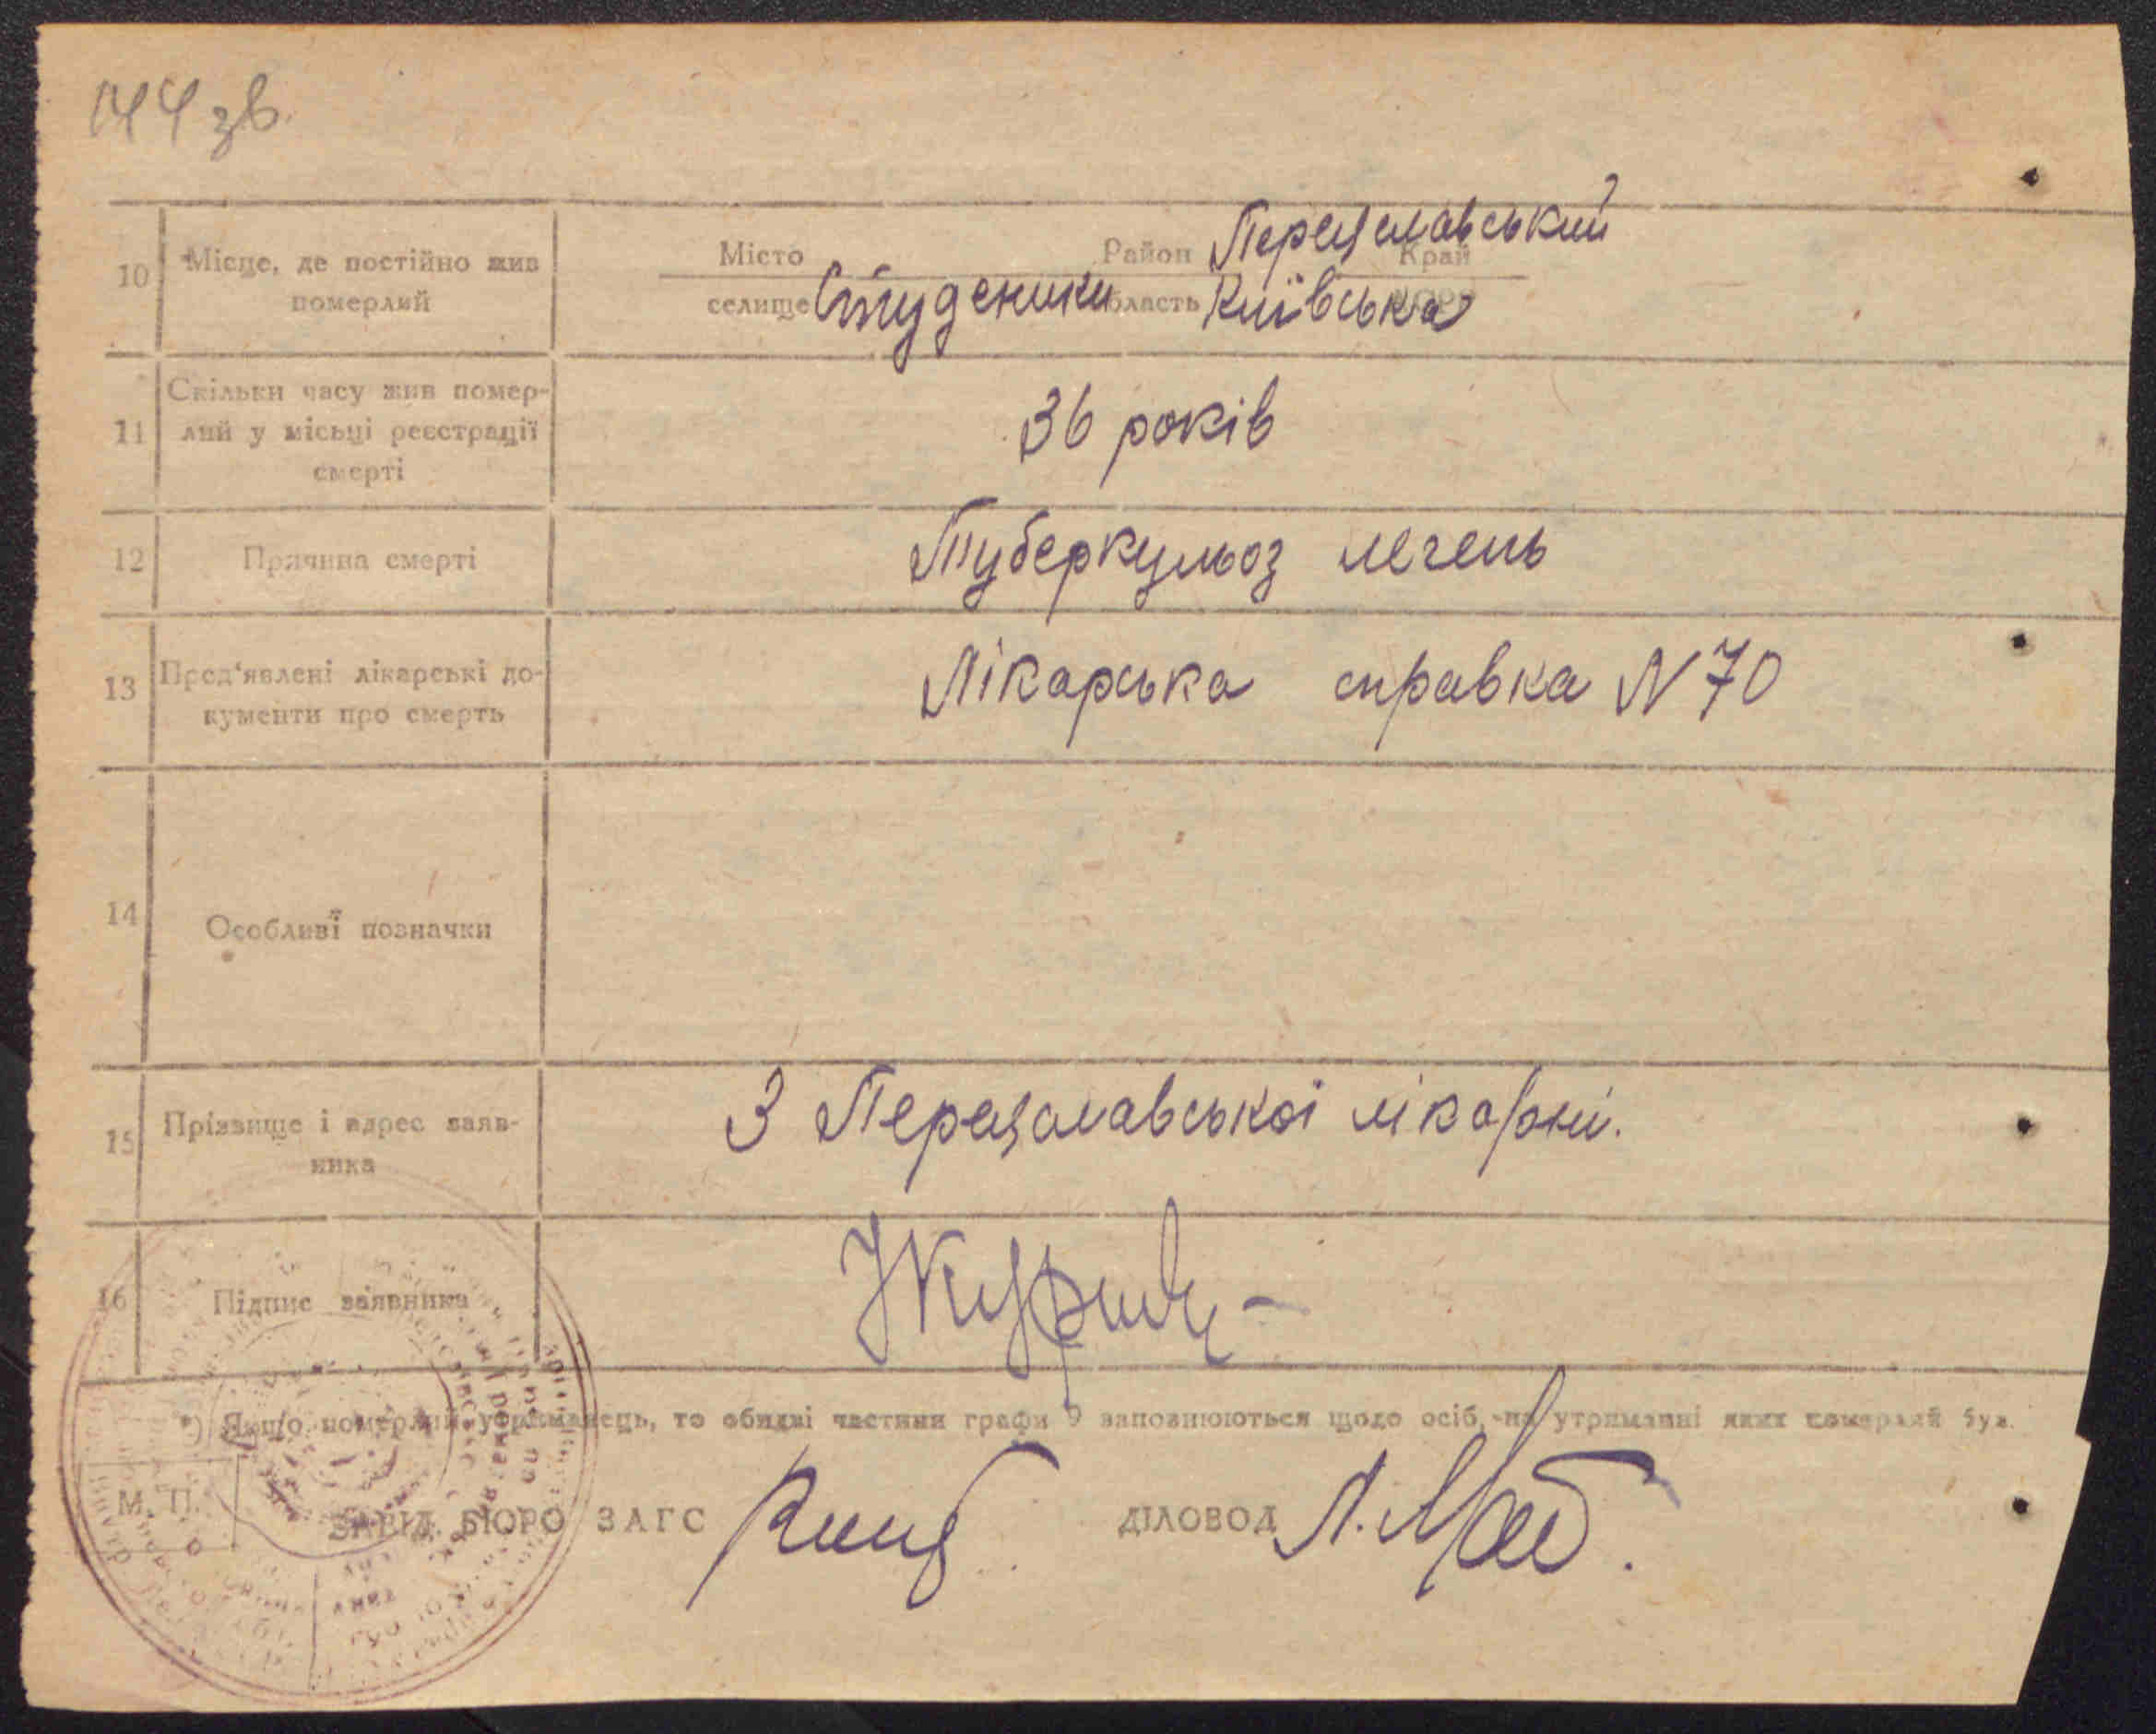 144 зв.
10 Місце, де постійно жив померлий
Місто Район Переяславський Край
селище Студеники область Київська
11 Скільки часу жив помер-
лий у місьці реєстрації
смерті
36 років
12 Причина смерті
Туберкульоз легень
13 Пред'явлені лікарські до-
кументи про смерть
Лікарська справка N 70
14 Особливі позначки
15 Прізвище і адрес заяв-
ника
З Переяславської лікарні.
16 Підпис заявника
*) Якщо померлий утриманець, то обидві частини графи 9 заповнюються щодо осіб, на утриманні яких померлий був.
М. П.
ЗАВІД. БЮРО ЗАГС ДІЛОВОД